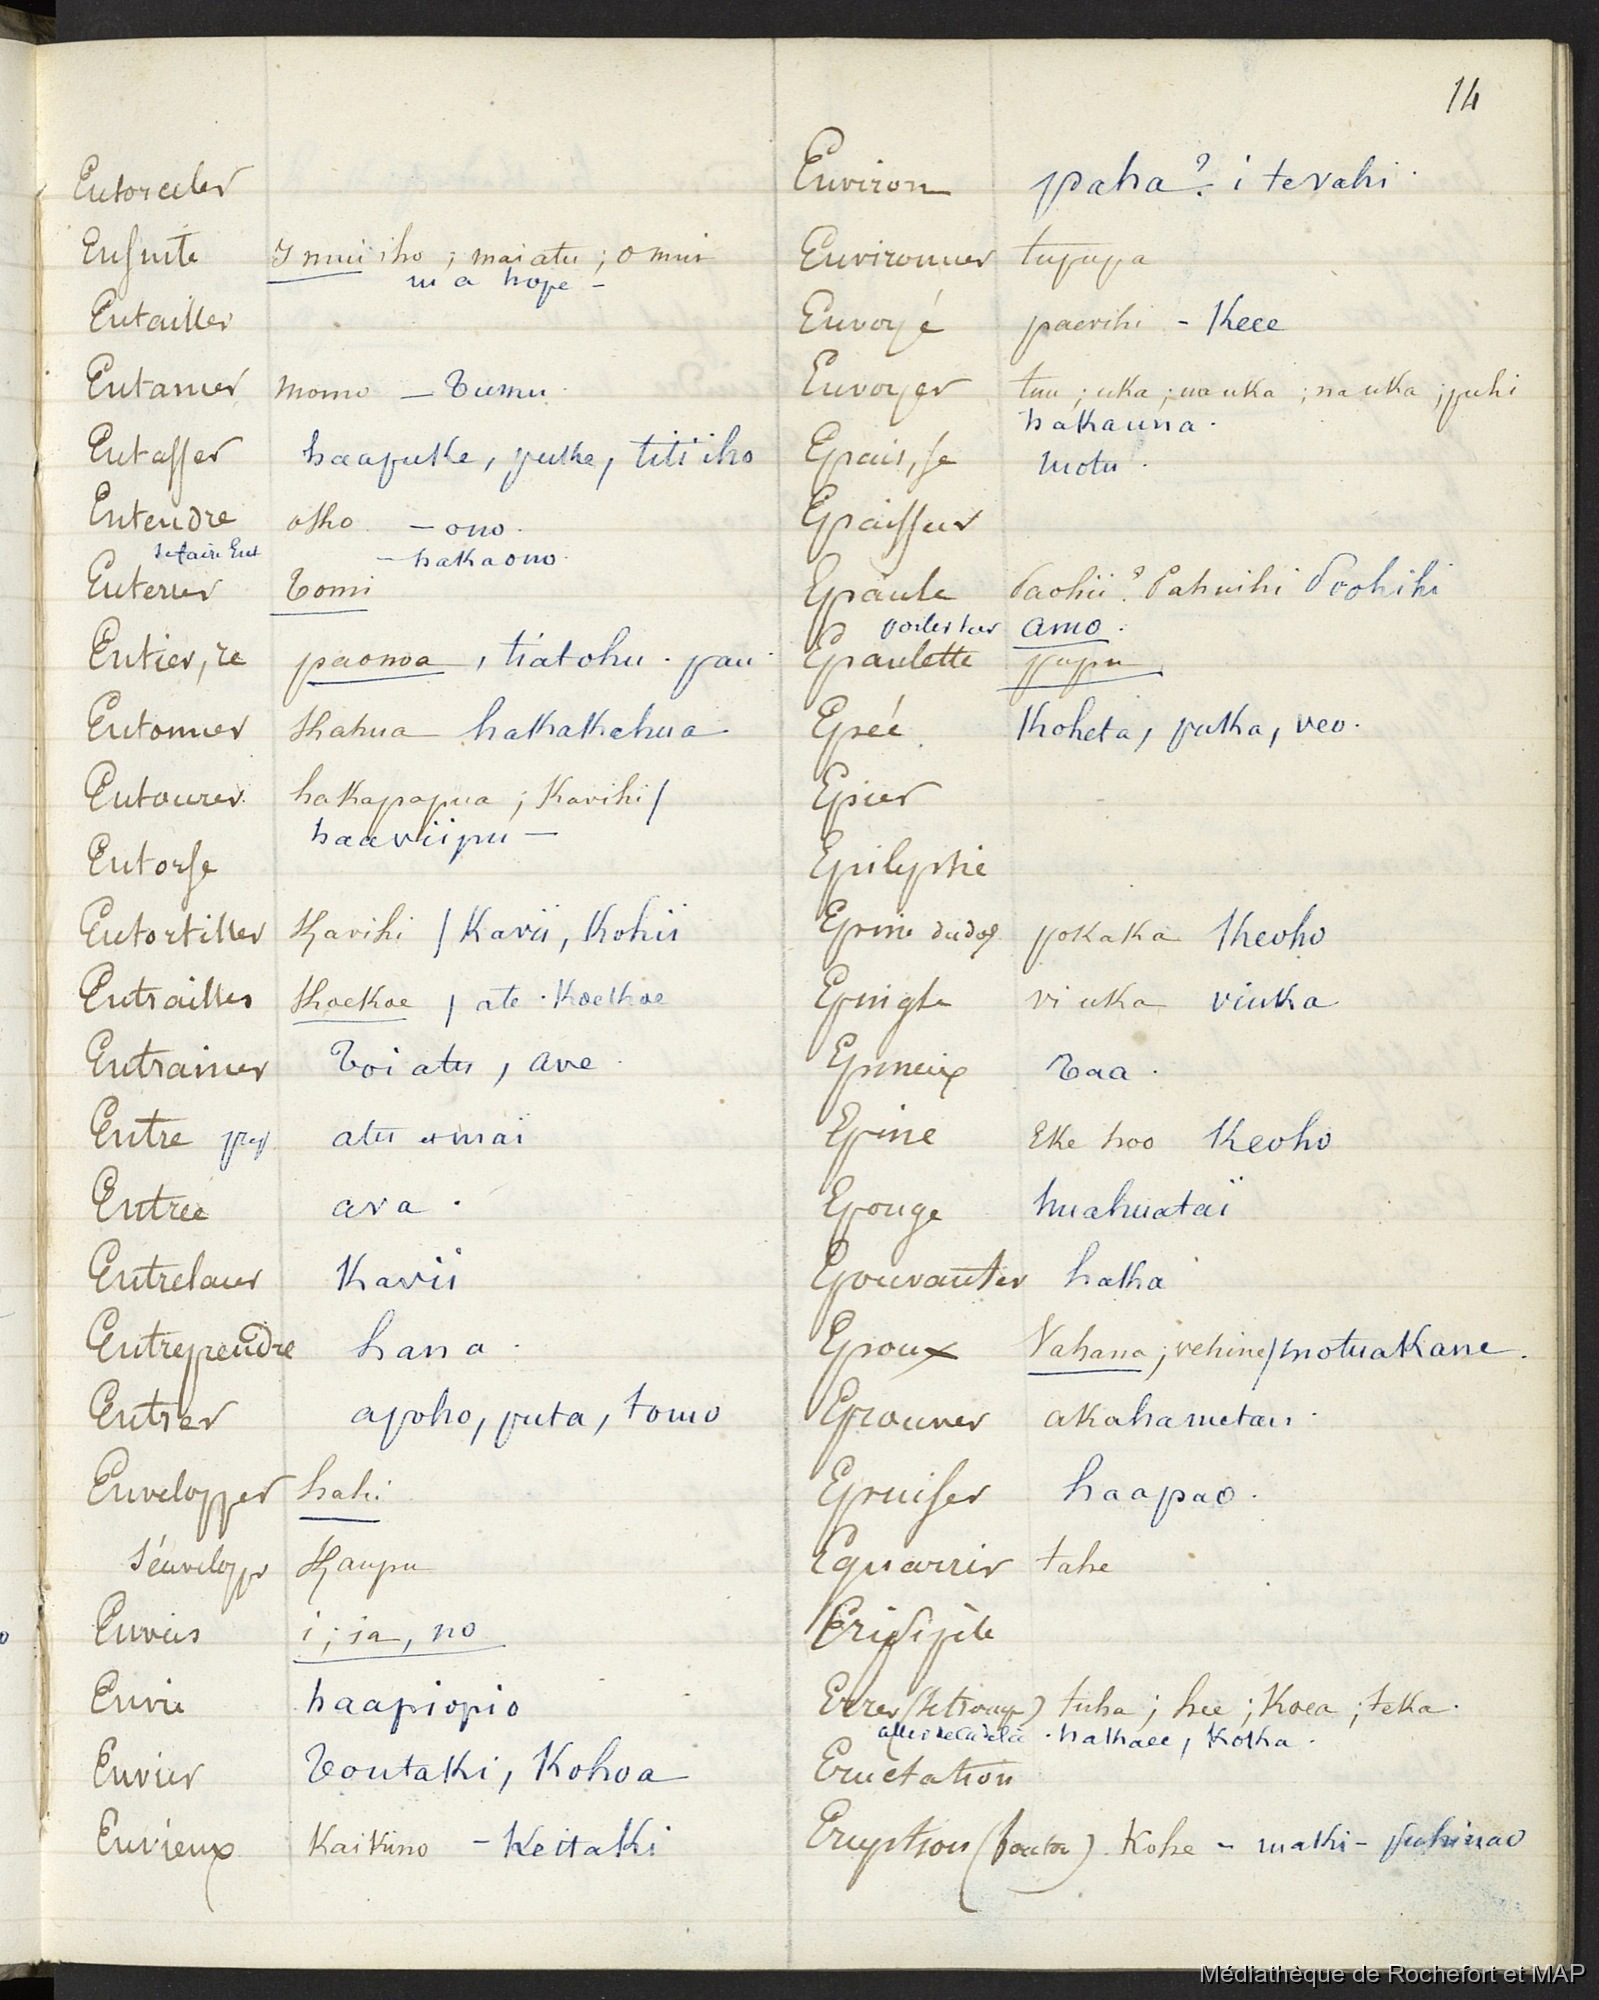 14
Ensorceler
Ensuite I muii iho ; mai atu ; o mui
ma hope -
Entailler
Entamer momo - Tumu.
Entasser haapuke, puke, titii iho
Entendre oko - ono.
se faire Ent - hakaono.
Enterrer Tomi
Entier, re paonoa , tiatohu . pau.
Entonner Kahua hakakahua
Entourer hakapapua ; Kavihi /
haaviipu -
Entorse
Entortiller Kavihi / Kavii, Kohii
Entrailles Koekoe / ate . Koekoe
Entrainer Toi atu , ave .
Entre prep atu et mai
Entrée ava .
Entrelacer Kavii
Entreprendre hana .
Entrer apoho, puta, tomo
Envelopper hahi
s'envelopper Kaupu
Envers i ; ia, no
Envie haapiopio
Envier Toutaki, Kohoa
Envieux Kaikino - Keitaki
Environ paha ? i tevahi .
Environner tupupa
Envoyé paevihi - Keee
Envoyer tuu ; uka ; ua uka ; na uka ; puhi
hakauna .
Epais, se motu .
Epaisseur
Epaule Paohii ? Pahuihi Poohihi
porter sur amo .
Epaulette pupu
Epée Koheta, puka, veo .
Epier
Epilepsie
Epine du dos pokaka Keoho
Epingle vi uka viuka
Epineux Taa .
Epine Eke hoo Keoho
Eponge huahuataï
Epouvanter haka
Epoux Vahana ; vehine / motuakane .
Eprouver akahametau .
Epuiser haapao .
Equarrir tahe
Erisipèle
Errer (se tromper) tuha ; hee ; Koea ; teka .
aller deçà delà . hakaee, Koka .
Eructation
Eruption (bouton) Kohe - maki - puhinao
Médiathèque de Rochefort et MAP